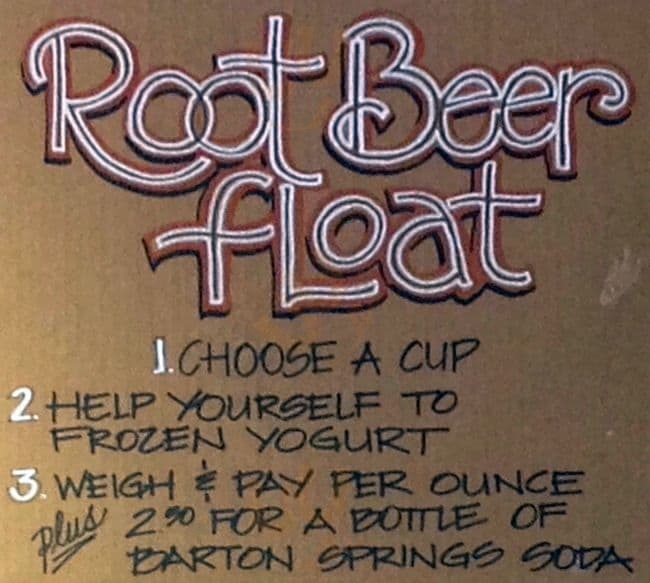 Root Beer
float
1. CHOOSE A CUP
2. HELP YOURSELF TO
FROZEN YOGURT
3. WEIGH & PAY PER OUNCE
plus 2.90 FOR A BOTTLE OF
BARTON SPRINGS SODA